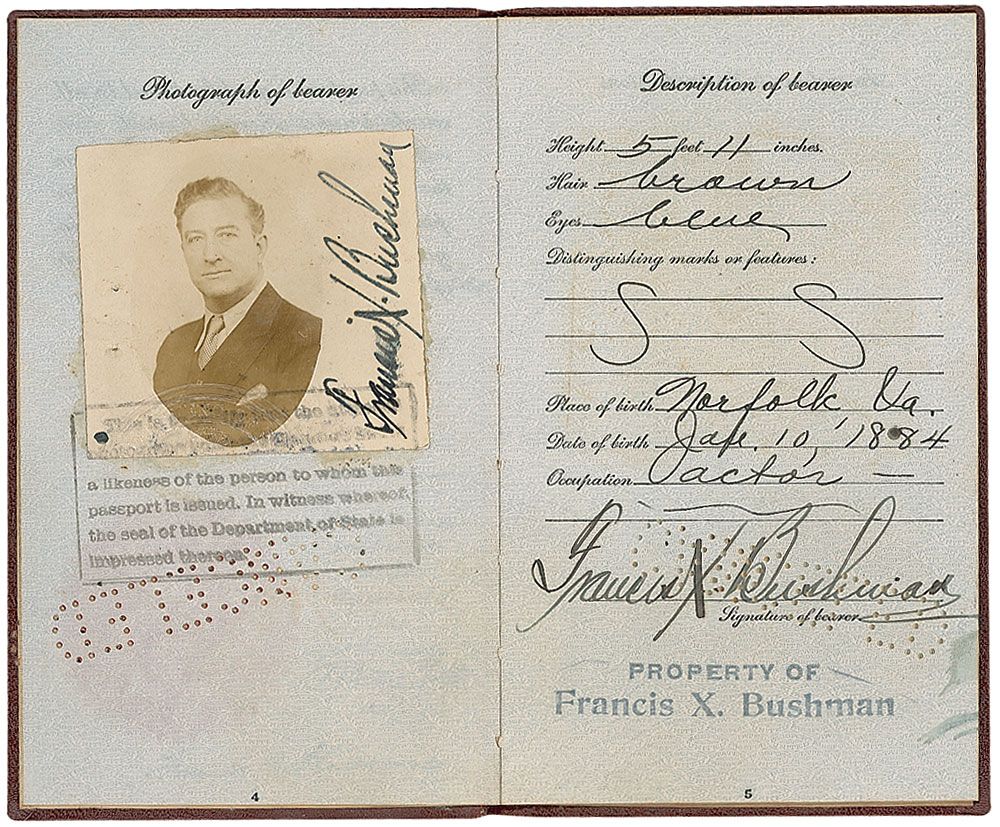 Photograph of bearer
Francis X. Bushman
This is
a likeness of the person to whom this
passport is issued. In witness whereof,
the seal of the Department of State is
impressed thereon.
4
Description of bearer
Height 5 feet 11 inches.
Hair brown
Eyes blue
Distinguishing marks or features:
Place of birth Norfolk Va.
Date of birth Jan. 10, 1884
Occupation actor
Francis X. Bushman
Signature of bearer
PROPERTY OF
Francis X. Bushman
5